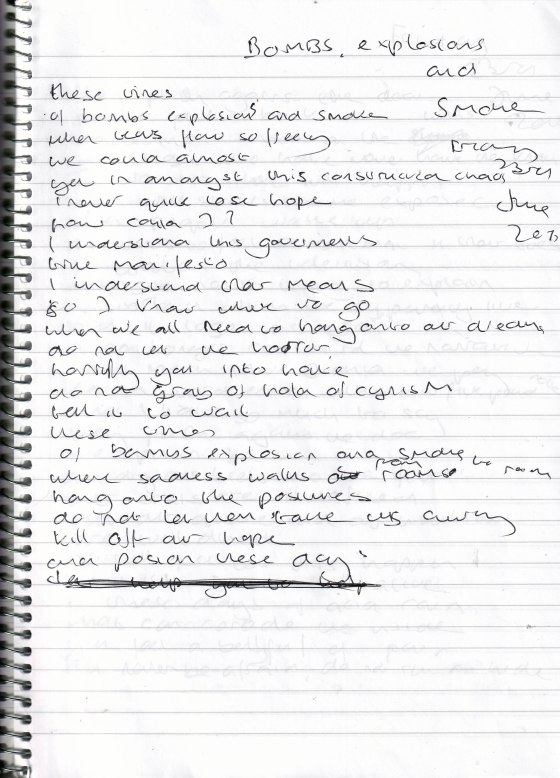 BOMBS, explosions
and
Smoke
Friday
23rd
June
these times
of bombs explosions and smoke
when tears flow so freely
we could almost
yet in amongst this constructed chaos
I never quite lose hope
how could I?
I understand this governments
true manifesto
I understand their means
so I know where to go
when we all need to hang onto our dreams
do not let the horror
horrify you into hate
do not grab of hold of cynism
tell it to wait
these times
of bombs explosion and smoke
where sadness walks from room to room
hang onto the positives
do not let them take us away
kill off our hope
and posion these days